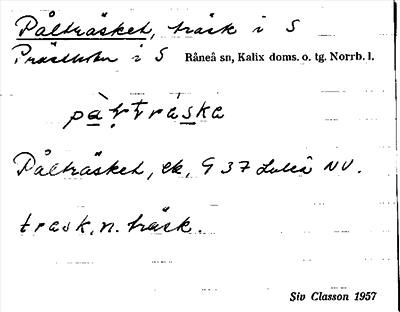 Pålträsket, träsk i S
Prästholm i S Råneå sn, Kalix doms. o. tg. Norrb. l.
pàḷtraska
Pålträsket, ek, 9 37 Luleå NV.
trask, n. träsk.
Siv Classon 1957